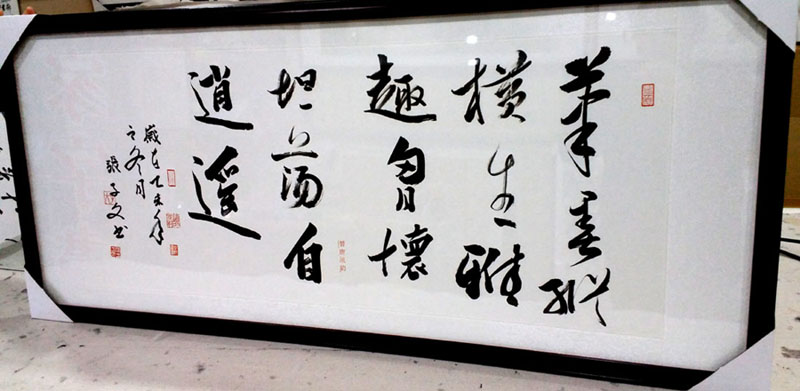 筆墨縱
橫生雅
趣胷懷
坦蕩自
逍遥
歲在乙未年
之冬月
張子文书